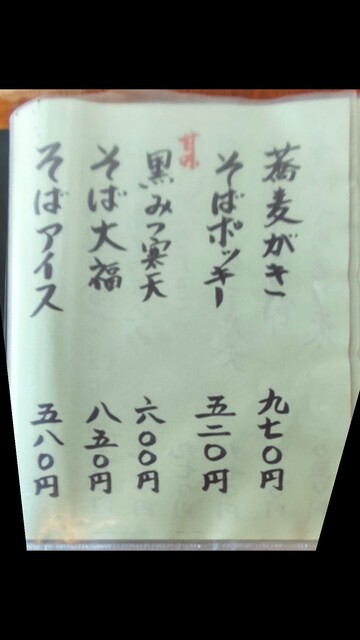 蕎麦がき 九七〇円
そばポッキー 五二〇円
甘味
黒みつ寒天 六〇〇円
そば大福 八五〇円
そばアイス 五八〇円